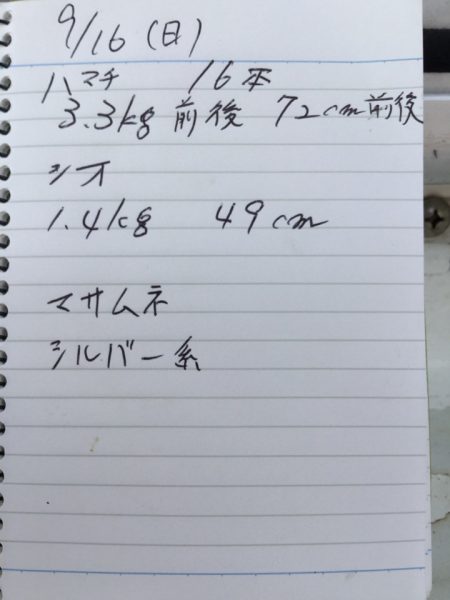 9/16 (日)
ハマチ 16本
3.3kg 前後 72cm前後
シオ
1.4kg 49cm
マサムネ
シルバー系